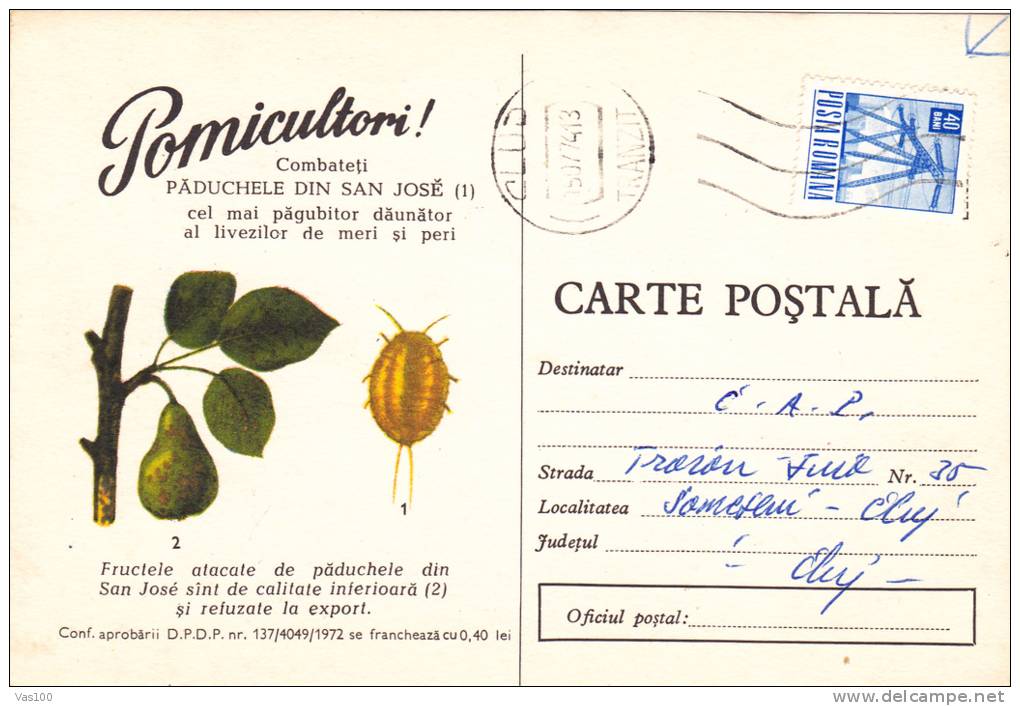 Pomicultori!
Combateți
PĂDUCHELE DIN SAN JOSĔ (1)
cel mai păgubitor dăunător
al livezilor de meri și peri
1
2
Fructele atacate de păduchele din
San José sînt de calitate inferioară (2)
și refuzate la export.
Conf. aprobării D.P.D.P. nr. 137/4049/1972 se franchează cu 0,40 lei
CLUJ
TRANZIT
40 BANI
POSTA ROMANA
CARTE POŞTALĂ
Destinatar
C. A. P.
Strada Nr. 35
Localitatea Someșeni - Cluj
Județul
- Cluj -
Oficiul poștal:
Vas100
www.delcampe.net